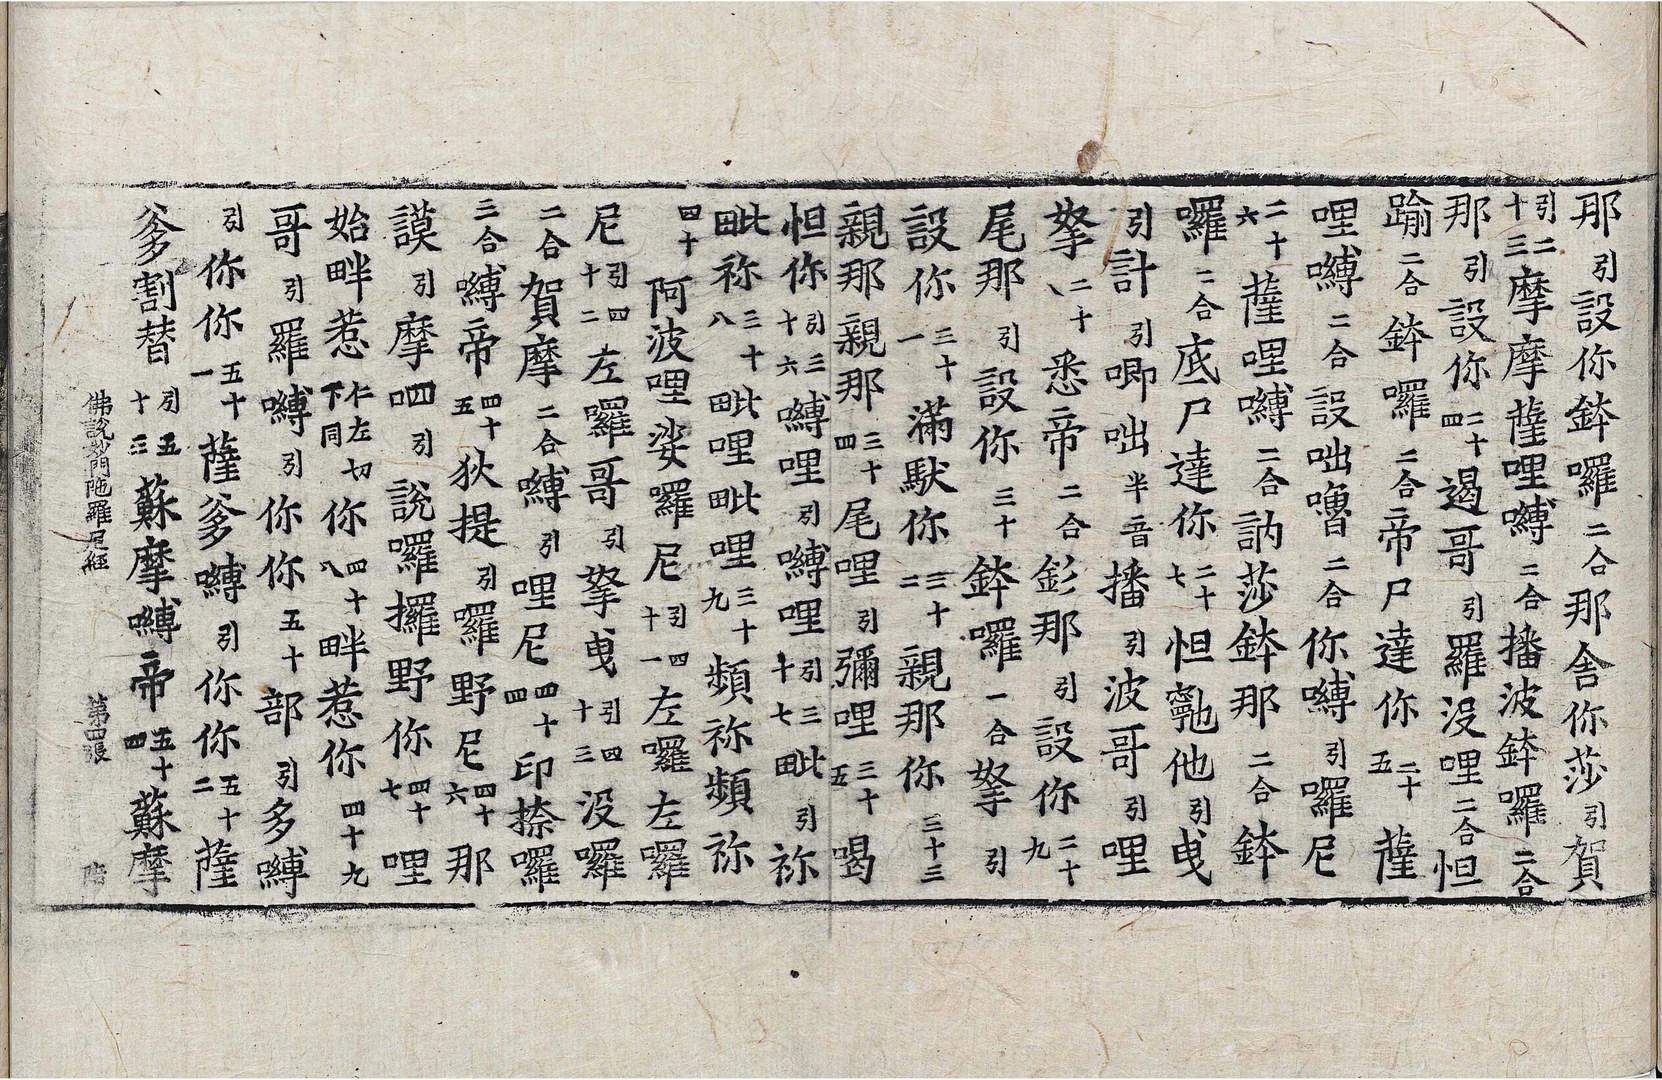 那引設你鉢囉二合那舍你莎引賀
引二十三摩摩薩哩嚩二合播波鉢囉二合
那引設你二十四遏哥引羅没哩二合怛
踰二合鉢囉二合帝尸達你二十五薩
哩嚩二合設咄嚕二合你嚩引囉尼
二十六薩哩嚩二合訥莎鉢那二合鉢
囉二合底尸達你二十七怛𩕳他引曵
引計引唧咄半音播引波哥引哩
拏二十八悉帝二合彭那引設你二十九
尾那引設你三十鉢囉二合拏引
設你三十一滿馱你三十二親那你三十三
親那親那三十四尾哩引彌哩三十五羯
怛你引三十六嚩哩引嚩哩引三十七毗引祢
毗祢三十八毗哩毗哩三十九頻祢頻祢
四十阿波哩娑囉尼引四十一左囉左囉
尼引四十二左囉哥引拏曵引四十三没囉
二合賀摩二合嚩引哩尼四十四印捺囉
二合嚩帝四十五狄提引囉野尼四十六那
謨引摩呬引說囉攞野你四十七哩
始畔惹仁左切下同你四十八畔惹你四十九
哥引羅嚩引你你五十部引多嚩
引你你五十一薩爹嚩引你你五十二薩
爹割替引五十三蘇摩嚩帝五十四蘇摩
佛說妙門陁羅尼經 第四張